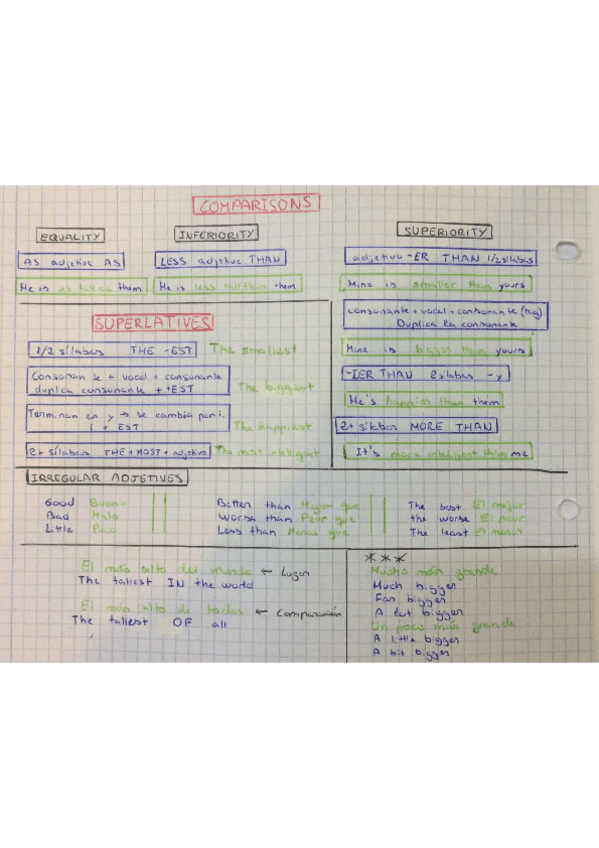 COMPARISONS
EQUALITY
AS adjetive AS
He is as tall as them
INFERIORITY
LESS adjetive THAN
He is less tall than them
SUPERIORITY
adjetivo -ER THAN 1/2 sílabas
Mine is smaller than yours
consonante + vocal + consonante (big)
Duplica la consonante
Mine is bigger than yours
-IER THAN 2 sílabas -y
He's happier than them
2+ sílabas MORE THAN
It's more inteligent than me
SUPERLATIVES
1/2 sílabas THE -EST The smallest
Consonante + vocal + consonante
duplica consonante + +EST The biggest
Terminan en y → se cambia por i.
i + EST The happiest
2+ sílabas THE + MOST + adjetivo The most inteligent
IRREGULAR ADJETIVES
Good Bueno Better than Mejor que The best El mejor
Bad Malo Worse than Peor que The worse El peor
Little Poco Less than Menos que The least El menor
El más alto del mundo ← Lugar
The tallest IN the world
El más alto de todos ← Comparación
The tallest OF all
***
Mucho más grande
Much bigger
Far bigger
A lot bigger
Un poco más grande
A little bigger
A bit bigger